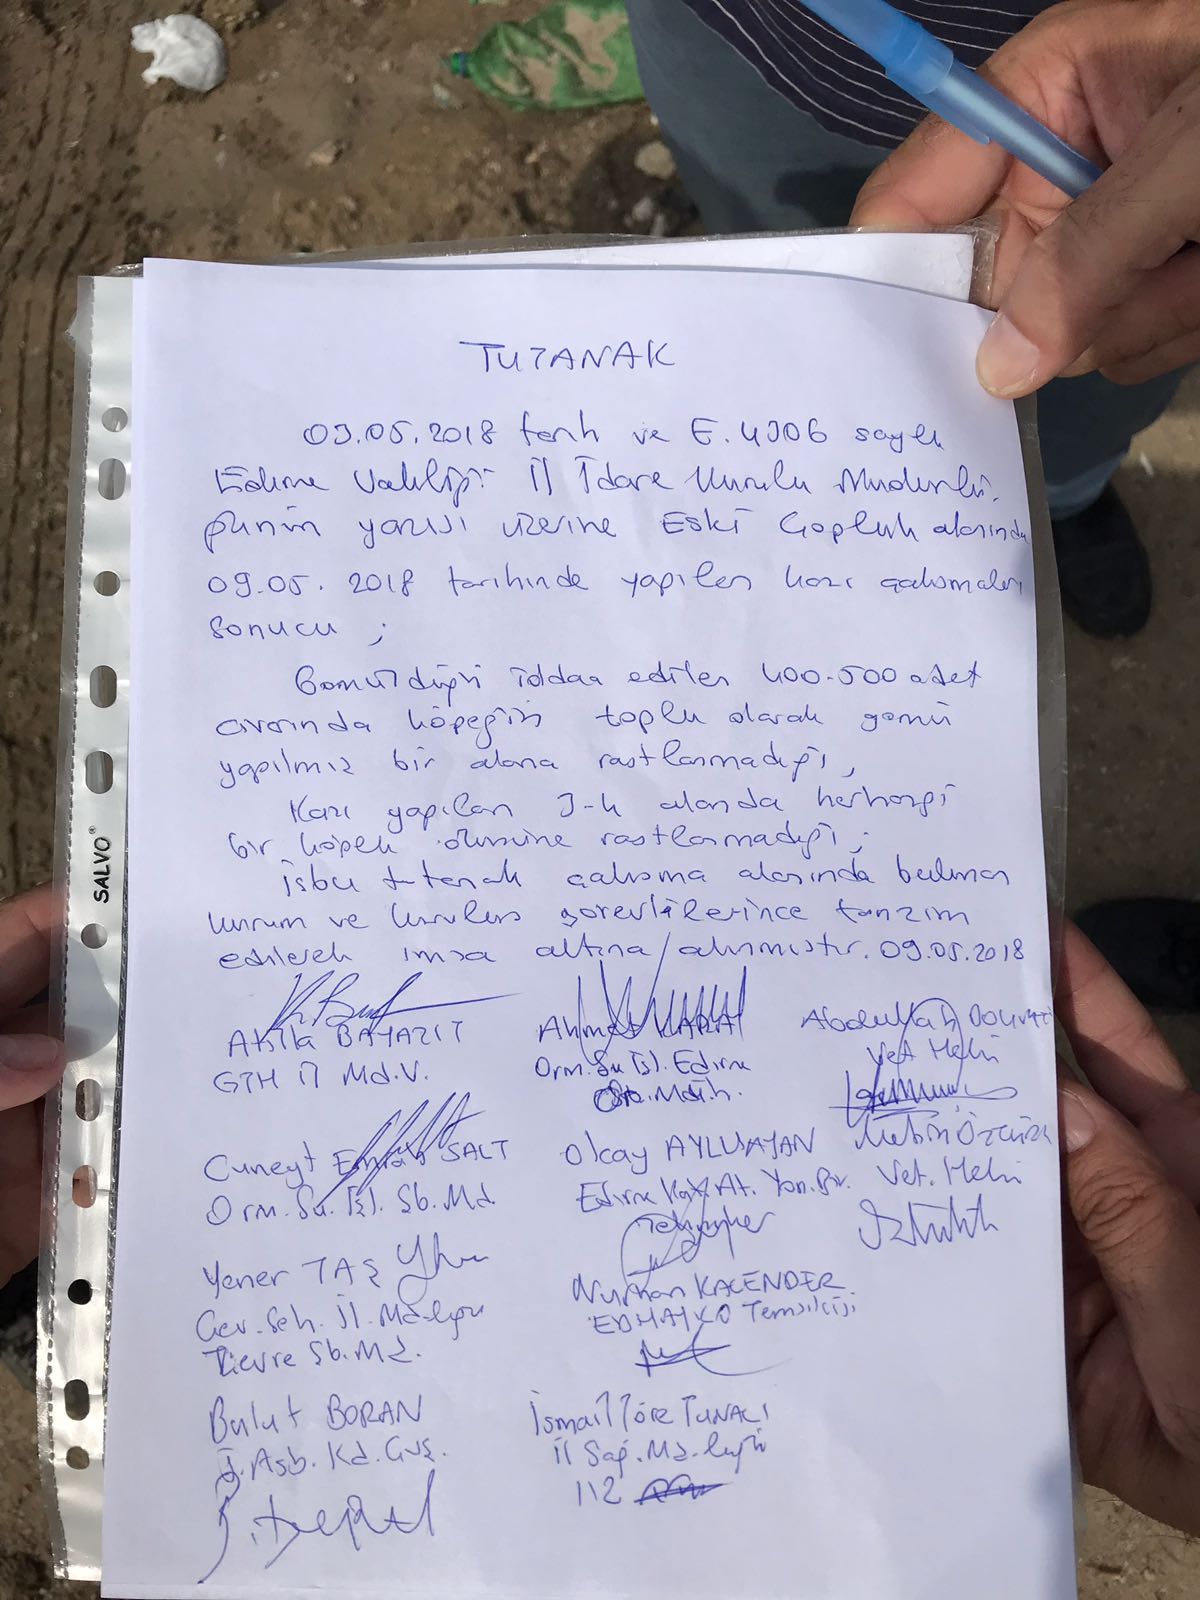 TUTANAK
09.05.2018 tarih ve E.4906 sayılı
Edirne Valiliği İl İdare Kurulu Müdürlü-
ğünün yazısı üzerine Eski Çöplük alanında
09.05.2018 tarihinde yapılan kazı çalışmaları
sonucu ;
Gömüldüğü iddaa edilen 400-500 adet
civarında köpeğin toplu olarak gömü
yapılmış bir alana rastlanmadığı,
Kazı yapılan 3-4 alanda herhangi
bir köpek ölüsüne rastlanmadığı;
işbu tutanak çalışma alanında bulunan
kurum ve kuruluş görevlilerince tanzim
edilerek imza altına alınmıştır. 09.05.2018
Atilla BAYAZIT
GTH İl Md.V.
Ahmet
Orm.Su İşl. Edirne
Abdullah
Vet Heki
Cüneyt SALT
Orm.Su.İşl.Şb.Md.
Olcay AYLUÇAYAN
Edirne Kat. At. Yön. Br.
Metin ÖZTÜRK
Vet. Heki
Yener TAŞ
Çev.Şeh.İl.Md.lüğü
Şb.Md.
Nurkan KALENDER
EDHAYKO Temsilcisi
Bulut BORAN
J.Asb.Kd.Çvş.
İsmail Töre TUNALI
İl Sağ.Md.lüğü
112
SALVO®